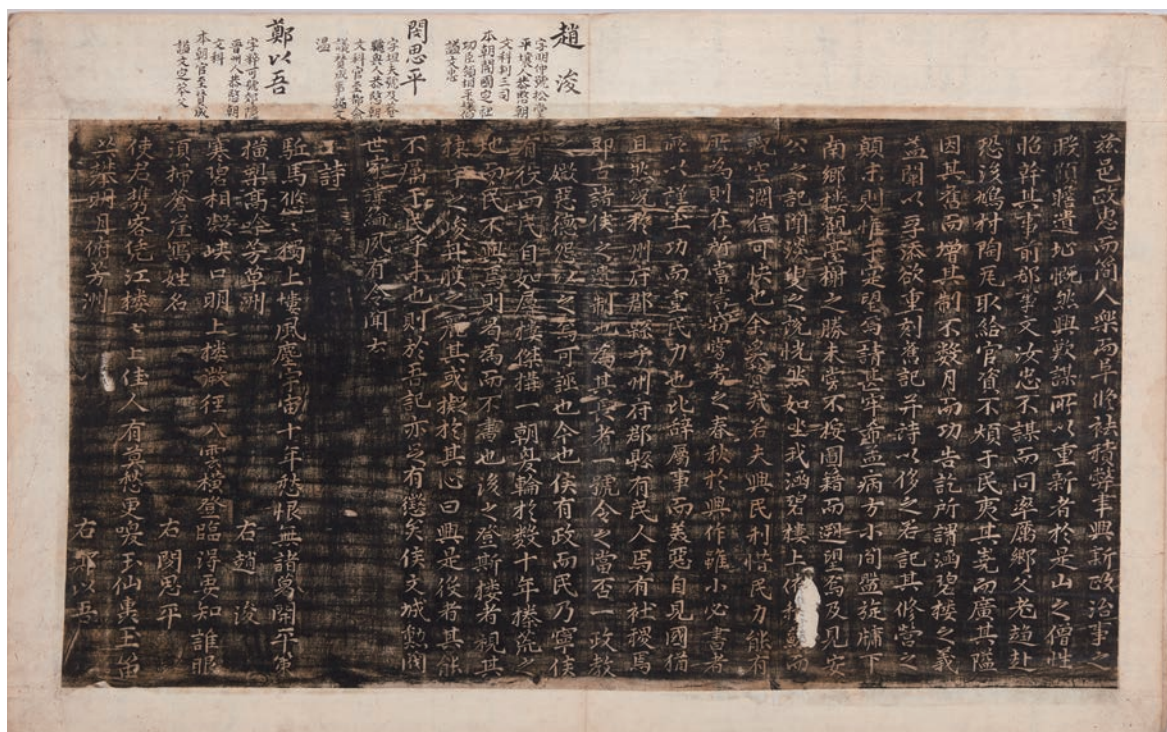 趙 浚
字明仲號松堂
平壤人恭愍朝
文科判三司
本朝開國定社
功臣領相平壤伯
謚文忠
閔思平
字坦夫號及菴
驪興人忠肅朝
文科官至都僉
議贊成事謚文
溫
鄭以吾
字粹可號郊隱
晉州人恭愍朝
文科
本朝官至贊成
謚文定
茲邑政惠而簡人樂而阜修祛積弊事興新政治事之
暇頃瞻遺址慨然興歎謀所以重新者於是山之僧性
昭幹其事前郡事文汝忠不謀而同率厲鄉父老趨赴
恐後鳩村陶瓦取給官資不煩于民夷其嵬而廣其隘
因其舊而增其制不數月而功告訖所謂涵碧樓之義
蓋闕以孚添欲重刻舊記并詩以侈之若記其修營之
顛末則惟子定望焉請甚牢希孟病方小間盤旋牖下
南鄉樓觀臺榭之勝未嘗不按圖籍而遡望焉及見安
公之記聞淡叟之說恍然如坐我涵碧樓上
戲空闊信可快也余矣哉若夫興民利惜民力能有
所為則在所當書竊嘗考之春秋於興作雖小必書者
所以謹土功而重民力也比辭屬事而美惡自見國猶
且然況於州府郡縣乎州府郡縣有民人焉有社稷焉
即古諸侯之遺制也為其長者一號令之當否一政教
之媺惡德怨之之焉可誣也今也侯有政而民乃寧侯
有役而民自如屋樓傑搆一朝奐輪於數十年榛荒之
地而民不與焉則焉為而不書也後之登斯樓者視其
棟宇之後丹艧之麗其或揆於其心曰興是役者其能
不厲于民乎未也則於吾記亦之有懲矣侯文城勳閥
世家謹綸夙有令聞云
詩
駈馬悠悠獨上樓風塵宇宙十年愁恨無諸葛開平策
橫犁萬今芳草洲
右趙 浚
寒碧相凝峽口明上樓微徑入雲橫登臨得要知誰眼
須掃蒼崖寫姓名
右閔思平
使君携客倚江樓樓上佳人有莫愁更喚玉仙夷玉笛
以禁明月俯芳洲
右鄭以吾